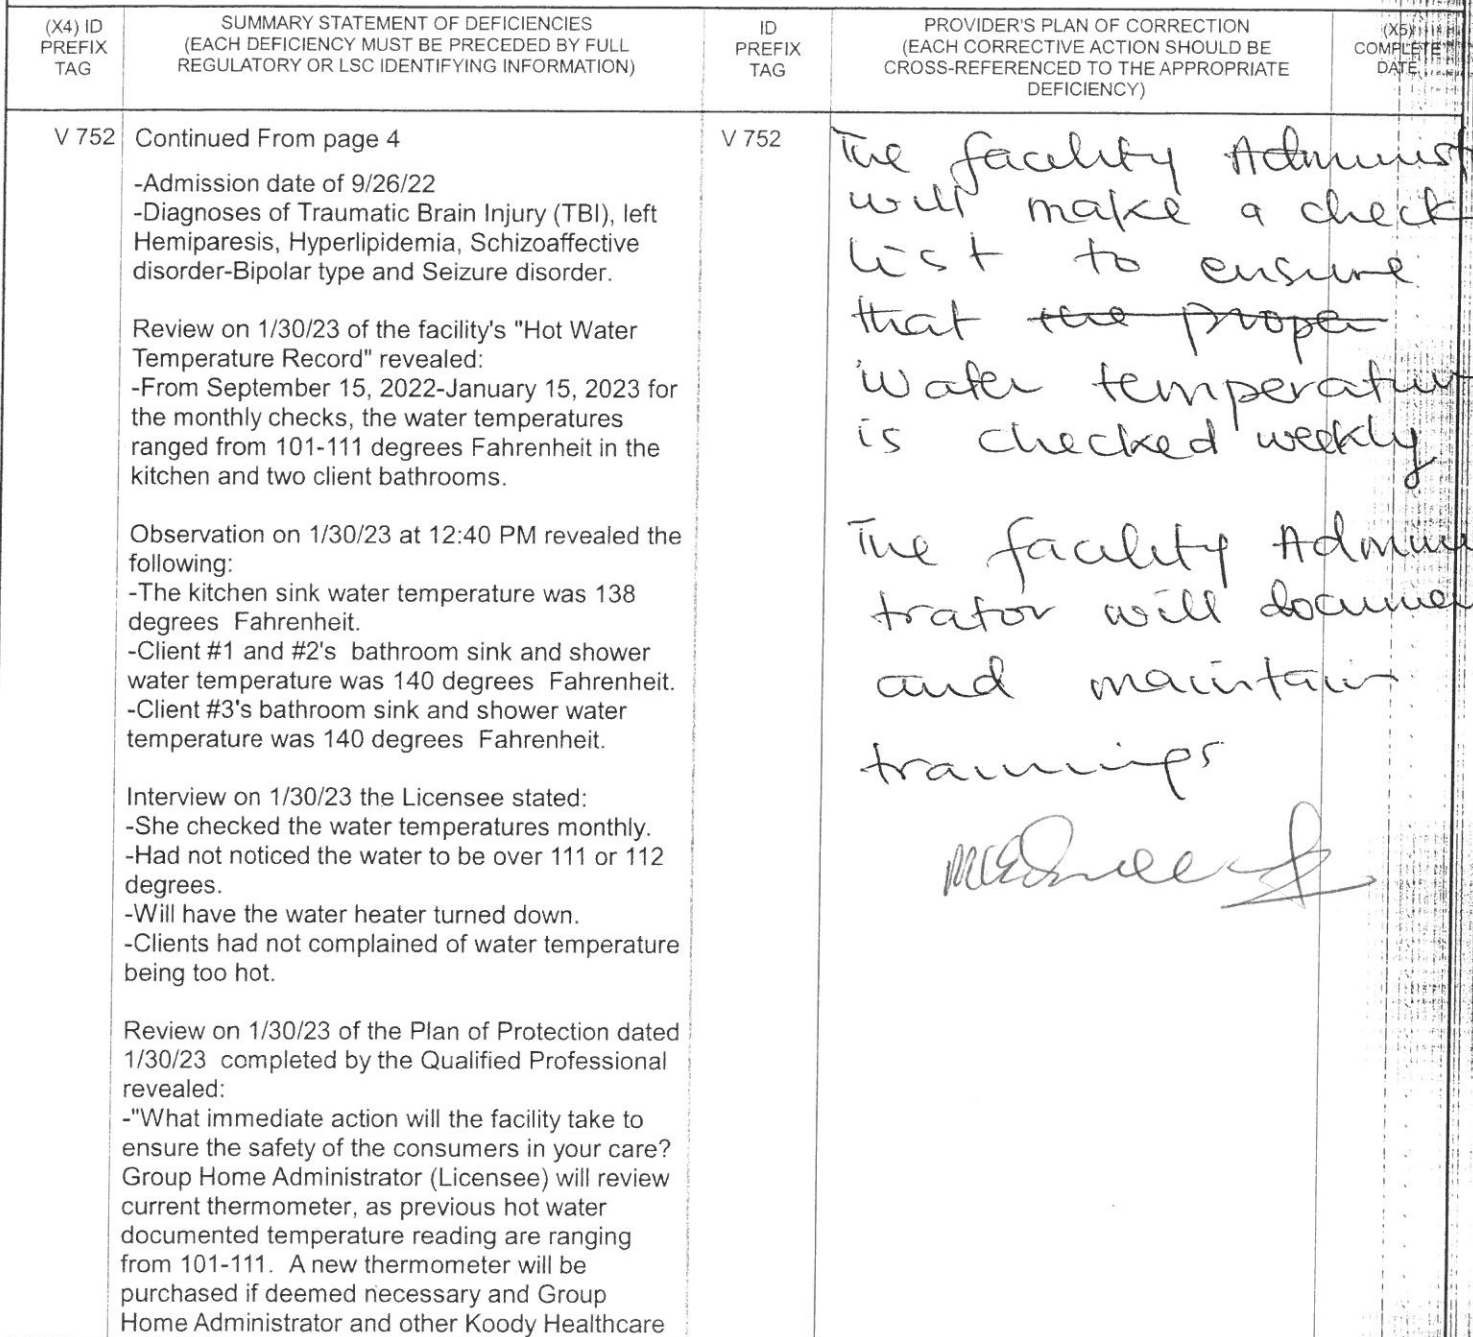 (X4) ID
PREFIX
TAG
SUMMARY STATEMENT OF DEFICIENCIES
(EACH DEFICIENCY MUST BE PRECEDED BY FULL
REGULATORY OR LSC IDENTIFYING INFORMATION)
ID
PREFIX
TAG
PROVIDER'S PLAN OF CORRECTION
(EACH CORRECTIVE ACTION SHOULD BE
CROSS-REFERENCED TO THE APPROPRIATE
DEFICIENCY)
(X5)
COMPLETE
DATE
V 752
Continued From page 4
-Admission date of 9/26/22
-Diagnoses of Traumatic Brain Injury (TBI), left
Hemiparesis, Hyperlipidemia, Schizoaffective
disorder-Bipolar type and Seizure disorder.
Review on 1/30/23 of the facility's "Hot Water
Temperature Record" revealed:
-From September 15, 2022-January 15, 2023 for
the monthly checks, the water temperatures
ranged from 101-111 degrees Fahrenheit in the
kitchen and two client bathrooms.
Observation on 1/30/23 at 12:40 PM revealed the
following:
-The kitchen sink water temperature was 138
degrees Fahrenheit.
-Client #1 and #2's bathroom sink and shower
water temperature was 140 degrees Fahrenheit.
-Client #3's bathroom sink and shower water
temperature was 140 degrees Fahrenheit.
Interview on 1/30/23 the Licensee stated:
-She checked the water temperatures monthly.
-Had not noticed the water to be over 111 or 112
degrees.
-Will have the water heater turned down.
-Clients had not complained of water temperature
being too hot.
Review on 1/30/23 of the Plan of Protection dated
1/30/23 completed by the Qualified Professional
revealed:
-"What immediate action will the facility take to
ensure the safety of the consumers in your care?
Group Home Administrator (Licensee) will review
current thermometer, as previous hot water
documented temperature reading are ranging
from 101-111. A new thermometer will be
purchased if deemed necessary and Group
Home Administrator and other Koody Healthcare
V 752
The facility Administ
will make a check
list to ensure
that the proper
water temperatur
is checked weekly
The facility Adminis
trator will documen
and maintain
trainings